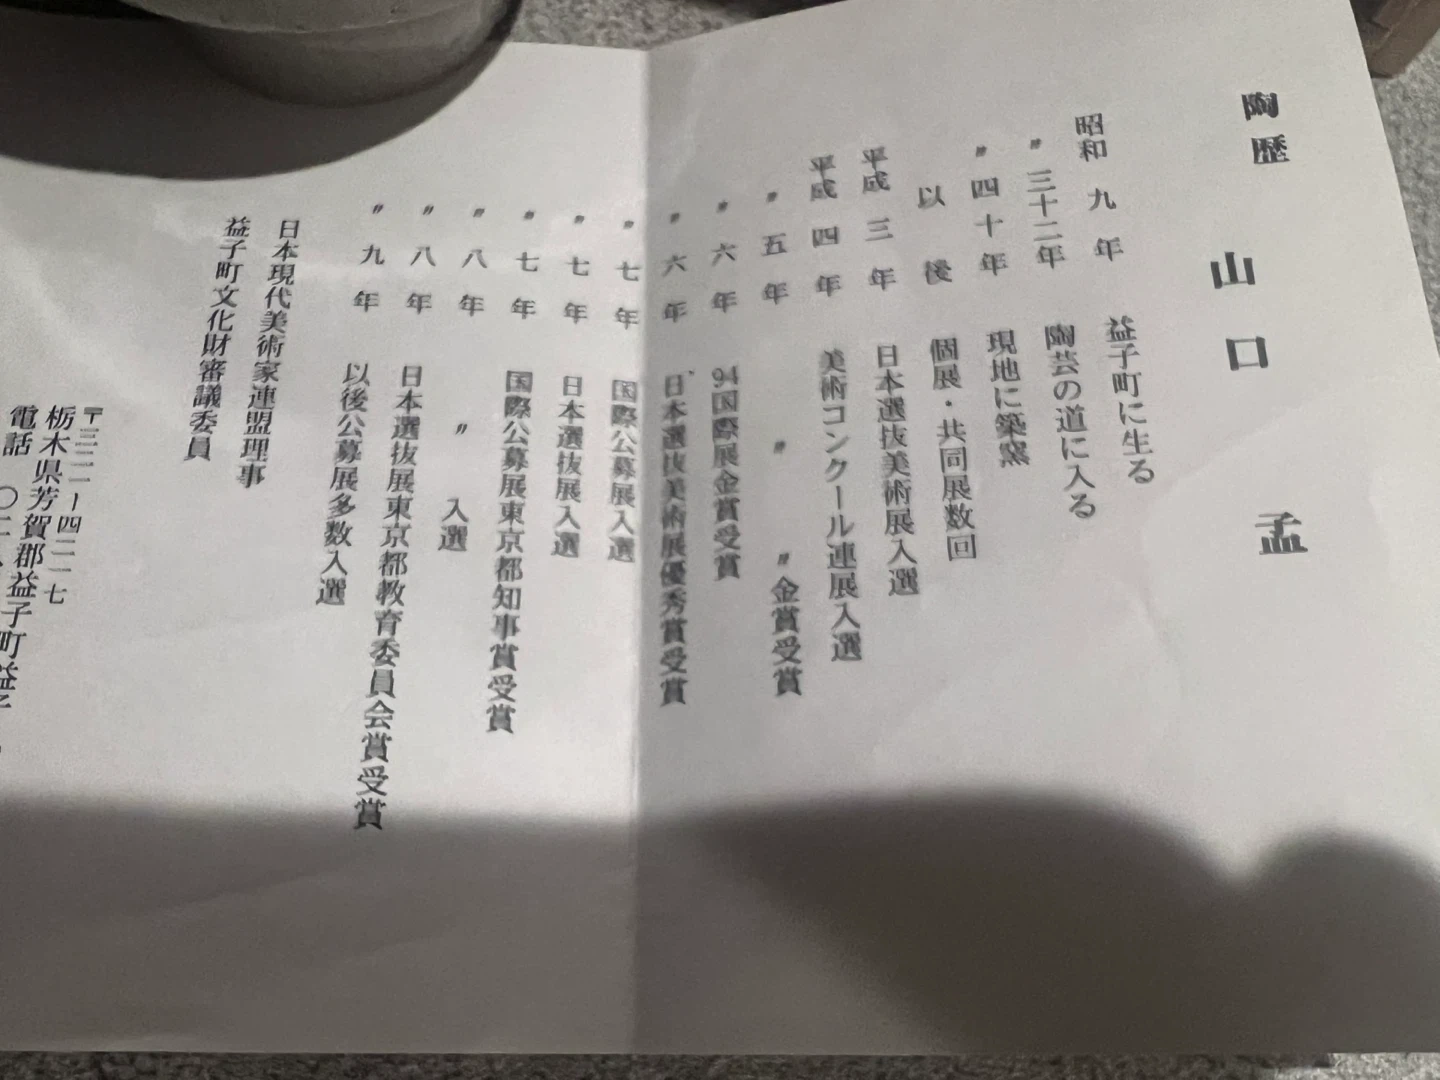 陶歴 山口 孟
昭和 九年 益子町に生る
〃 三十二年 陶芸の道に入る
〃 四十年 現地に築窯
以後 個展・共同展数回
平成 三年 日本選抜美術展入選
平成 四年 美術コンクール連展入選
〃 五年 〃 〃金賞受賞
〃 六年 94国際展金賞受賞
〃 六年 日本選抜美術展優秀賞受賞
〃 七年 国際公募展入選
〃 七年 日本選抜展入選
〃 七年 国際公募展東京都知事賞受賞
〃 八年 〃 入選
〃 八年 日本選抜展東京都教育委員会賞受賞
〃 九年 以後公募展多数入選
日本現代美術家連盟理事
益子町文化財審議委員
〒三二一ー四二一七
栃木県芳賀郡益子町益子
電話 〇二八